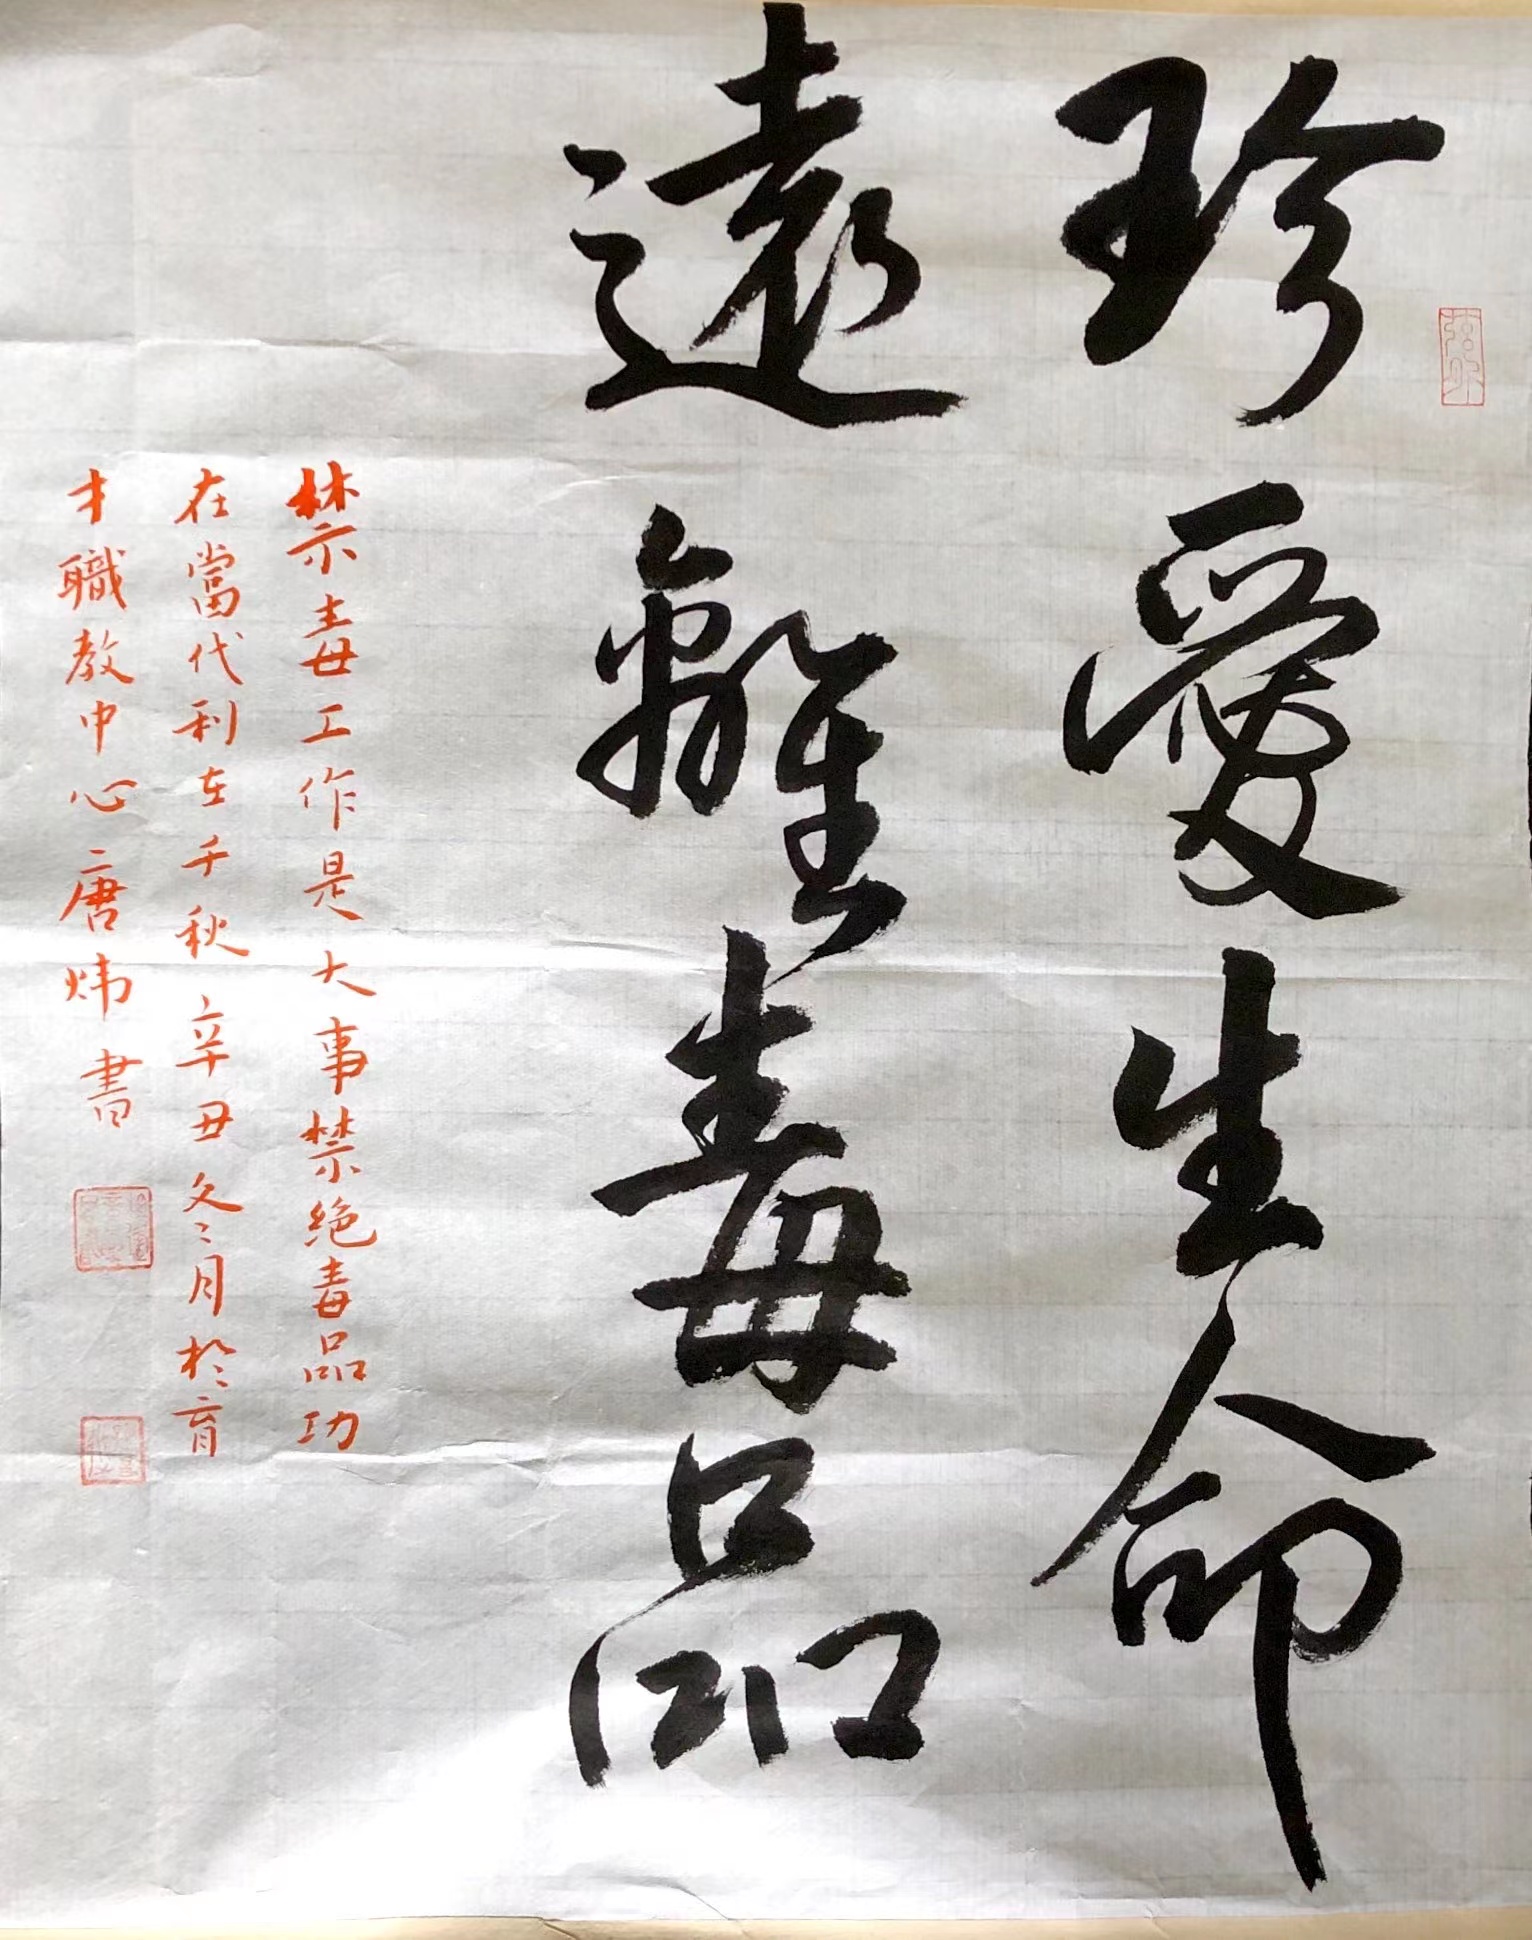 珍愛生命
遠離毒品
禁毒工作是大事禁絶毒品功
在當代利在千秋辛丑冬月於育
才職教中心唐炜書